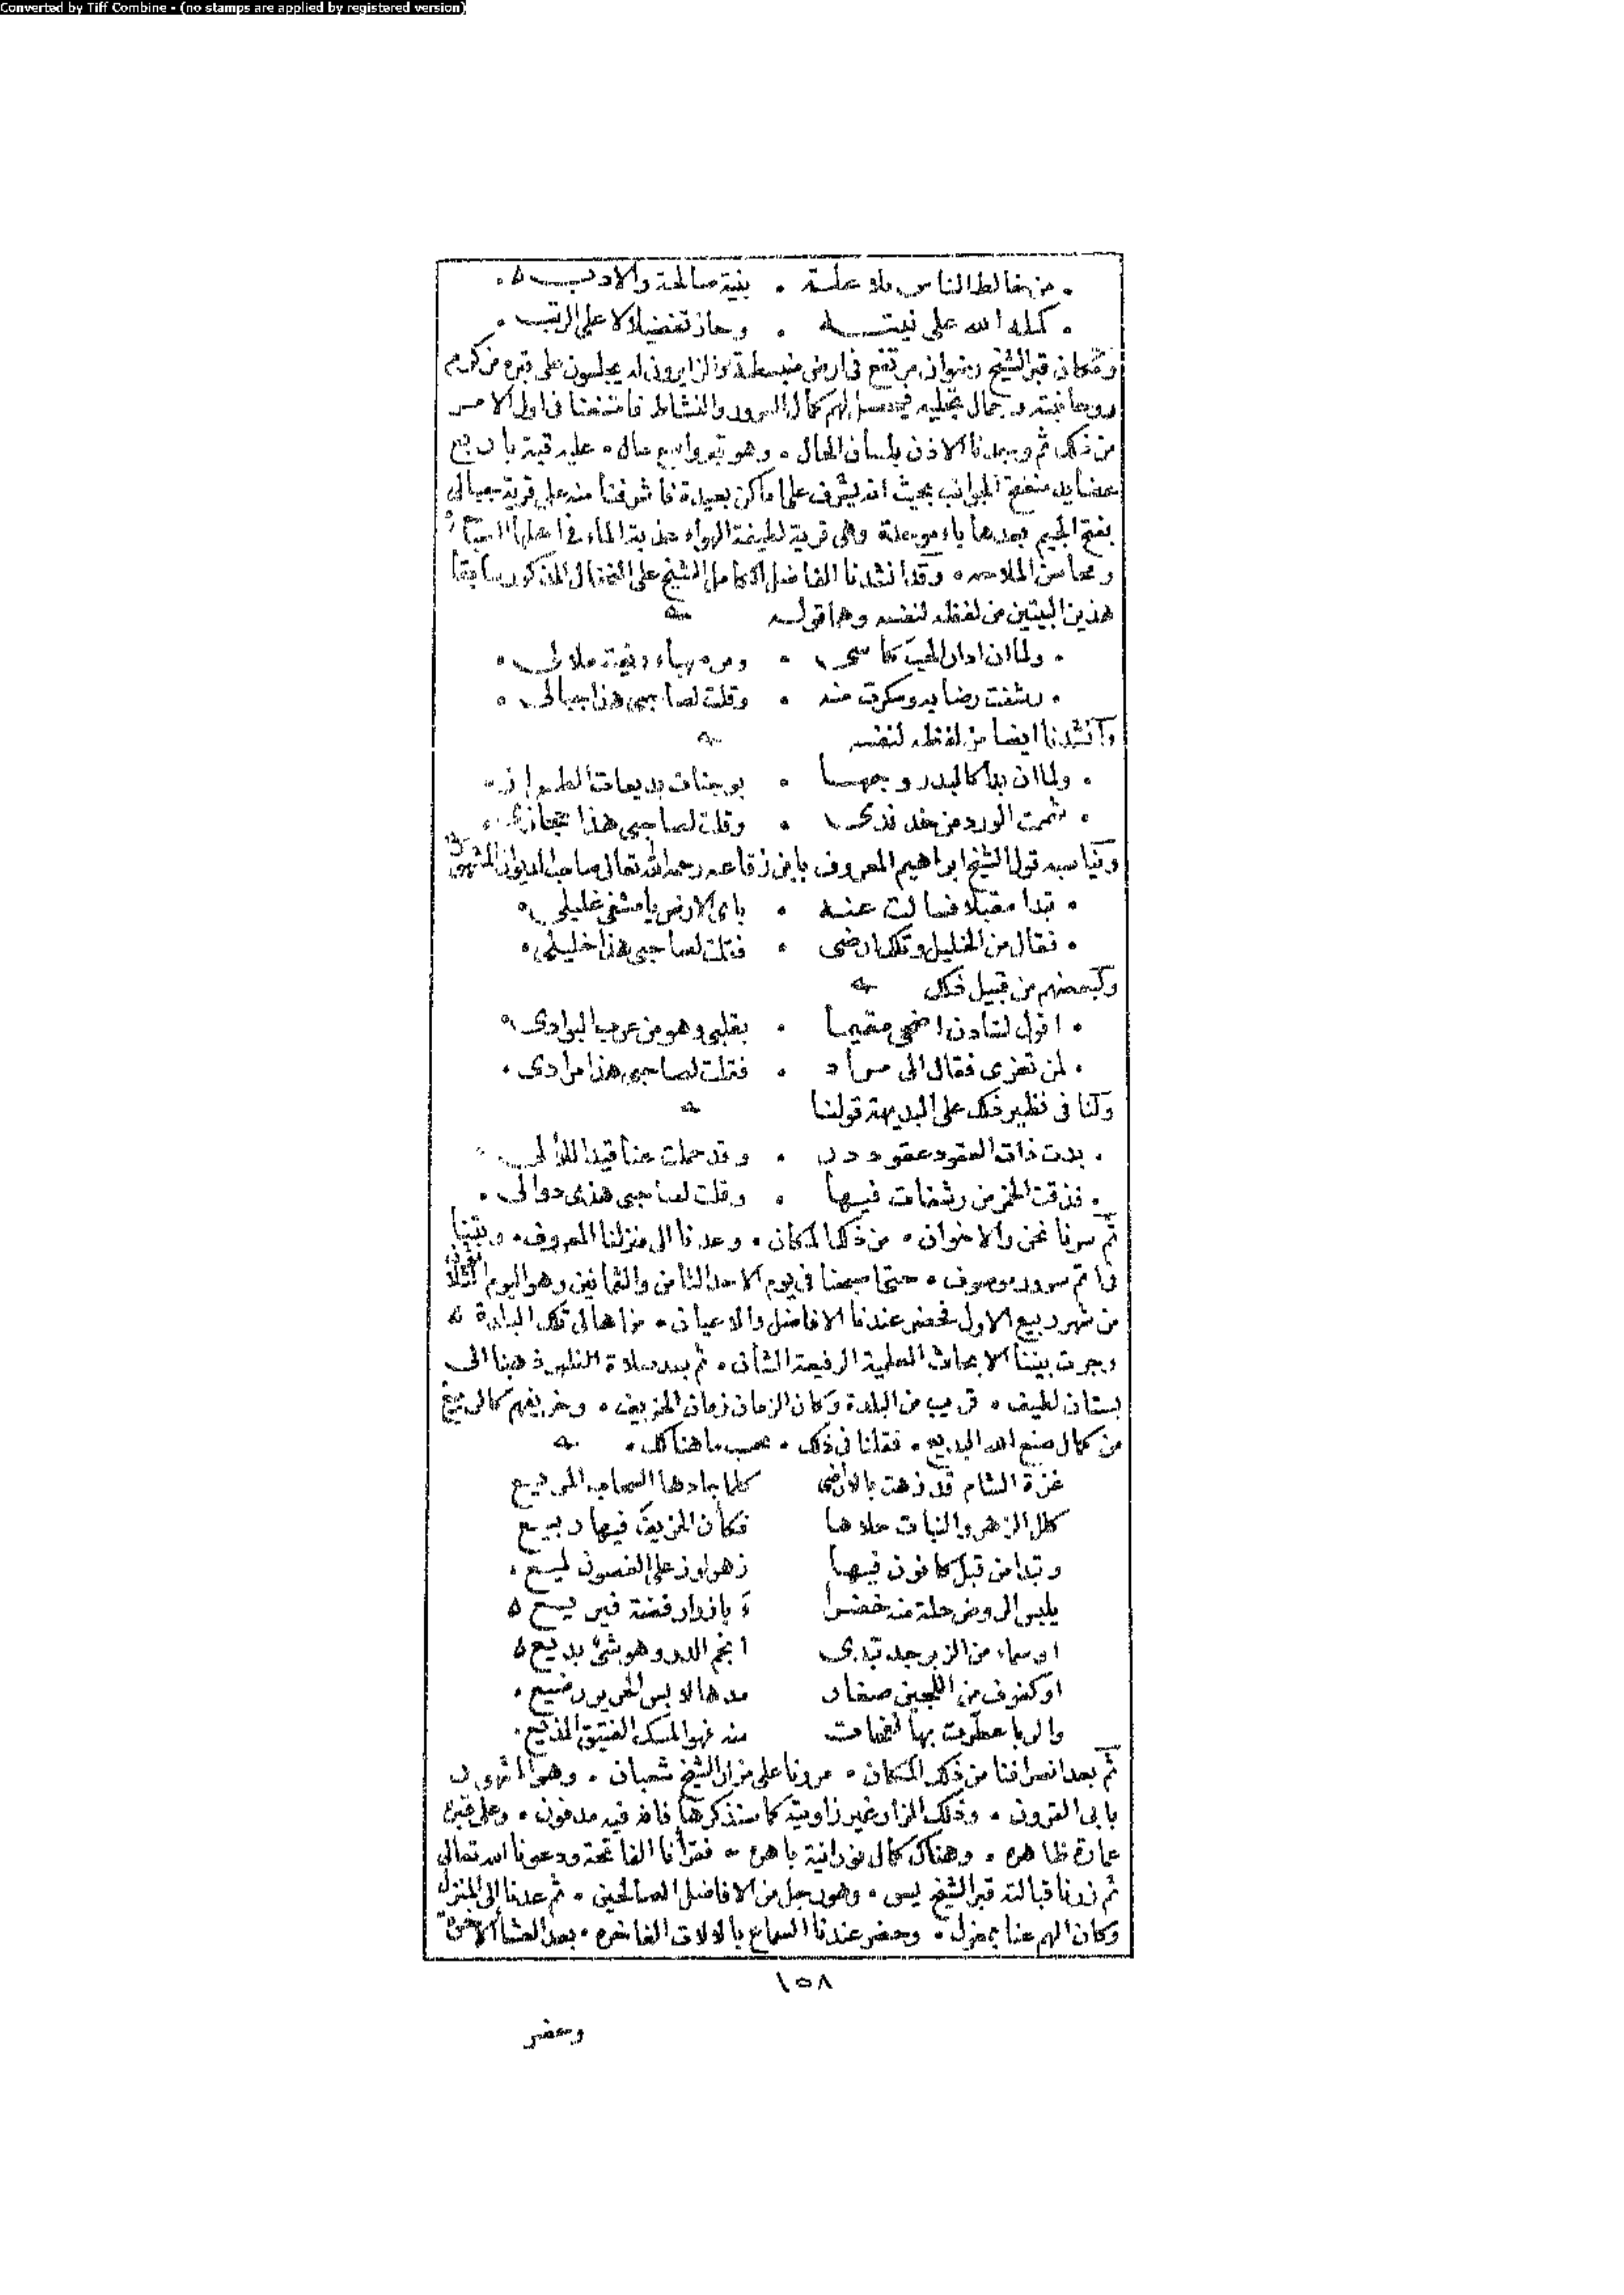 Converted by Tiff Combine - (no stamps are applied by registered version)
من خالط الناس بلا علة • بنية صالحة والادب
كله الله على نيته • وحاز تفضيلا على الرتب
ومكان قبر الشيخ رضوان مرتفع فى ارض منبسطة والزايرون له يجلسون على قبره من كرم
روحانيته وجمال تجليه فيحصل لهم كمال السرور والنشاط فامتنعنا فى اول الامر
من ذلك ثم وجدنا الاذن بلسان الحال • وهو قبر واسع عال • عليه قبة باربع
عضايد منفتح الجوانب بحيث انه يشرف على اماكن بعيدة فاشرفنا منه على قرية جبالى
بفتح الجيم بعدها باء موحدة وهى قرية لطيفة الهواء عذبة الماء فى اهلها
ومحاسن الملاحه • وقد انشدنا الفاضل الكامل الشيخ على المذكور سابقا
هذين البيتين من لفظه لنفسه وهما قوله
• ولما ان ادار الحب كاسى • ومن صهباء ريقته ملالى •
• رشفت رضابه وسكرت منه • وقلت لصاحبى هذا جبالى •
وانشدنا ايضا من لفظه لنفسه
• ولما ان بدا كالبدر وجها • بوجنات بديعات الطراز
• شممت الورد من خد ندى • وقلت لصاحبى هذا حجازى
ويناسبه قول الشيخ ابراهيم المعروف بابن زقاعه رحمه الله تعالى صاحب الديوان المشهور
• تبدا مقبلا فسالت عنه • باى الارض يا مشفى غليلى •
• فقال من الخليل وتلك ارضى • فقلت لصاحبى هذا خليلى •
ولبعضهم من قبيل ذلك
• اقول لشادن اضحى مقيما • بقلبى وهو من عرب البوادى •
• لمن تعزى فقال الى مراد • فقلت لصاحبى هذا مرادى •
ولنا فى نظير ذلك على البديهة قولنا
• بدت ذات العقود عقود در • وقد حملت عناقيد اللألى
• فذقت الخمر من رشفات فيها • وقلت لصاحبى هذى دوالى •
ثم سرنا نحن والاخوان • من ذلك المكان • وعدنا الى منزلنا المعروف • وبتنا
فى اتم سرور موصوف • حتى اصبحنا فى يوم الاحد الثامن والثمانين وهو اليوم
من شهر ربيع الاول فحضر عندنا الافاضل والاعيان • من اهالى تلك البلدة
وجرت بيننا الابحاث العلمية الرفيعة الشأن • ثم بعد صلاة الظهر ذهبنا الى
بستان لطيف • قريب من البلدة وكان الزمان زمان الخريف • وخريفهم كالربيع
من كمال صنع الله البديع • فقلنا فى ذلك • بحسب ما هنالك •
غزة الشام قد زهت بالاراضى كلما جادها السحاب المريع
كلل الزهر والنبات حلاها فكأن الخريف فيها ربيع
وتبدا من قبل كانون فيها زهر لوز على الغصون لميع •
يلبس الروض حلة منه خضرا ء بازرار فضة
او سماء من الزبرجد تبدى انجم الدر وهو شئ بديع
او كفوف من اللجين صغار مدها لابس الحرير رضيع •
والربا عطرت بها نفحات منه فهو المسك الفتيق
ثم بعد انصرافنا من ذلك المكان • مررنا على مزار الشيخ شعبان • وهو المشهور
بابى القرون • وذلك المزار غير زاويته كما سنذكرها فانه فيه مدفون • وعلى قبره
عمارة ظاهره • وهناك كمال نورانية باهره • فقرأنا الفاتحة ودعونا الله تعالى
ثم زرنا قبالته قبر الشيخ يس • وهو رجل من الافاضل الصالحين • ثم عدنا الى المنزل
وكان الهم عنا بمعزل • وحضر عندنا السماع بالالات الفاخره • بعد العشا الآخره
١٥٨
وحضر